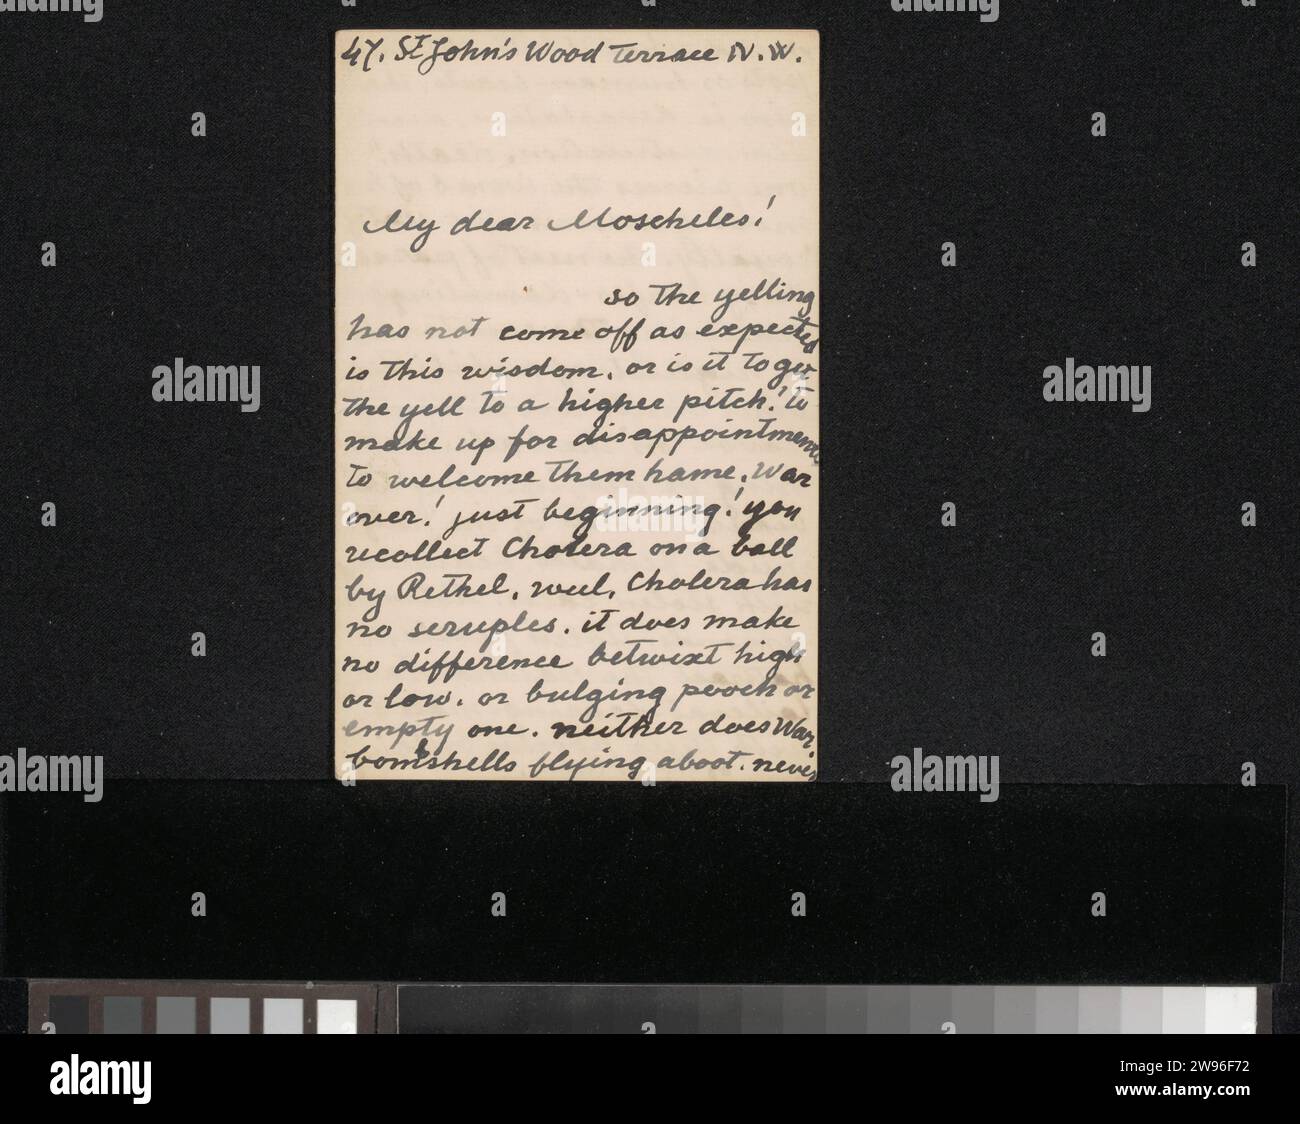 47. St John's Wood Terrace N.W.
My dear Moscheles!
so the yelling
has not come off as expected
is this wisdom, or is it to get
the yell to a higher pitch! to
make up for disappointment
to welcome them hame. War
over! just beginning! you
recollect Cholera on a ball
by Rethel, well, Cholera has
no scruples. it does make
no difference betwixt high
or low. or bulging pooch or
empty one. neither does War
bombshells flying aboot. never
alamy
Image ID: 2W96F72
www.alamy.com